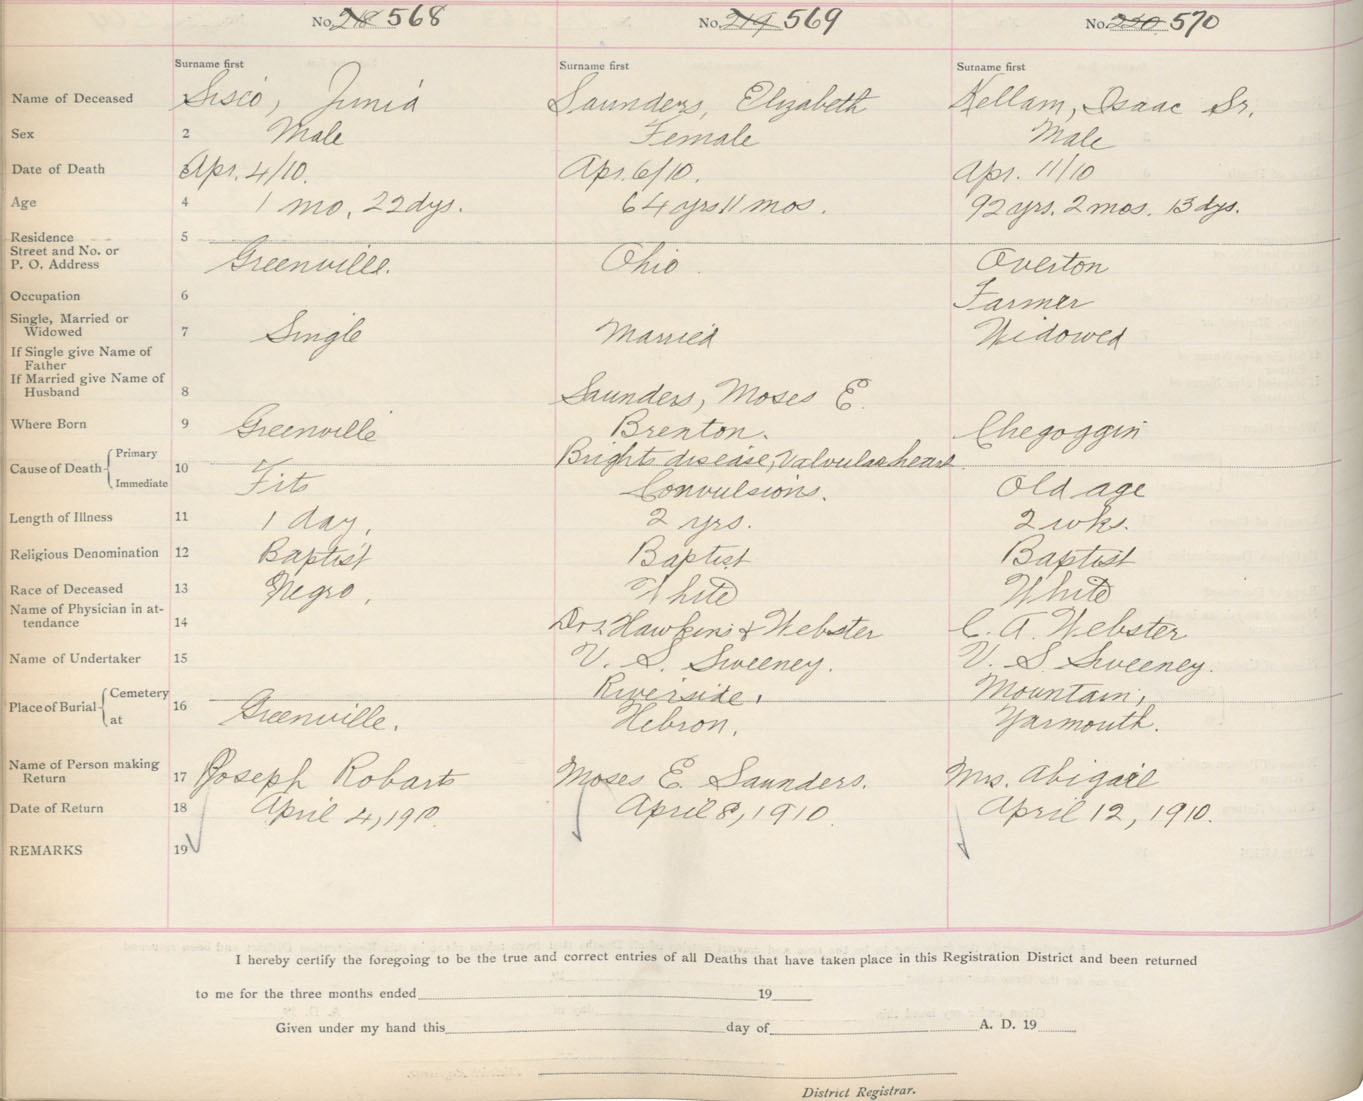 No. 218 568 No. 219 569 No. 220 570
Surname first Surname first Surname first
Name of Deceased 1 Sisco, Junia Saunders, Elizabeth Kellam, Isaac Sr.
Sex 2 Male Female Male
Date of Death 3 Apr. 4/10. Apr. 6/10. Apr. 11/10
Age 4 1 mo. 22dys. 64 yrs 11 mos. 92 yrs. 2 mos. 13 dys.
Residence 5
Street and No. or
P. O. Address Greenville. Ohio Overton
Occupation 6 Farmer
Single, Married or
Widowed 7 Single Married Widowed
If Single give Name of
Father
If Married give Name of
Husband 8 Saunders, Moses E.
Where Born 9 Greenville Brenton. Chegoggin
Cause of Death Primary 10 Brights disease, Valvular heart
Immediate Fits Convulsions. Old age
Length of Illness 11 1 day. 2 yrs. 2 wks.
Religious Denomination 12 Baptist Baptist Baptist
Race of Deceased 13 Negro, White White
Name of Physician in at-
tendance 14 Drs. Hawkins & Webster C. A. Webster
Name of Undertaker 15 V. S. Sweeney. V. S Sweeney.
Place of Burial Cemetery 16 Riverside, Mountain,
at Greenville. Hebron, Yarmouth.
Name of Person making
Return 17 Joseph Robarts Moses E. Saunders. Mrs. Abigail
Date of Return 18 April 4, 1910. April 8, 1910 April 12, 1910.
REMARKS 19
I hereby certify the foregoing to be the true and correct entries of all Deaths that have taken place in this Registration District and been returned
to me for the three months ended 19
Given under my hand this day of A. D. 19
District Registrar.